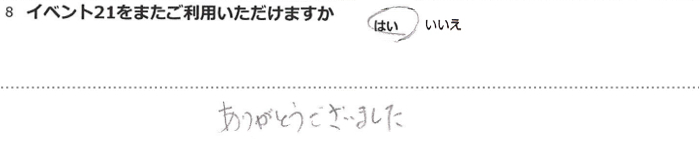 8 イベント21をまたご利用いただけますか はい いいえ
ありがとうございました